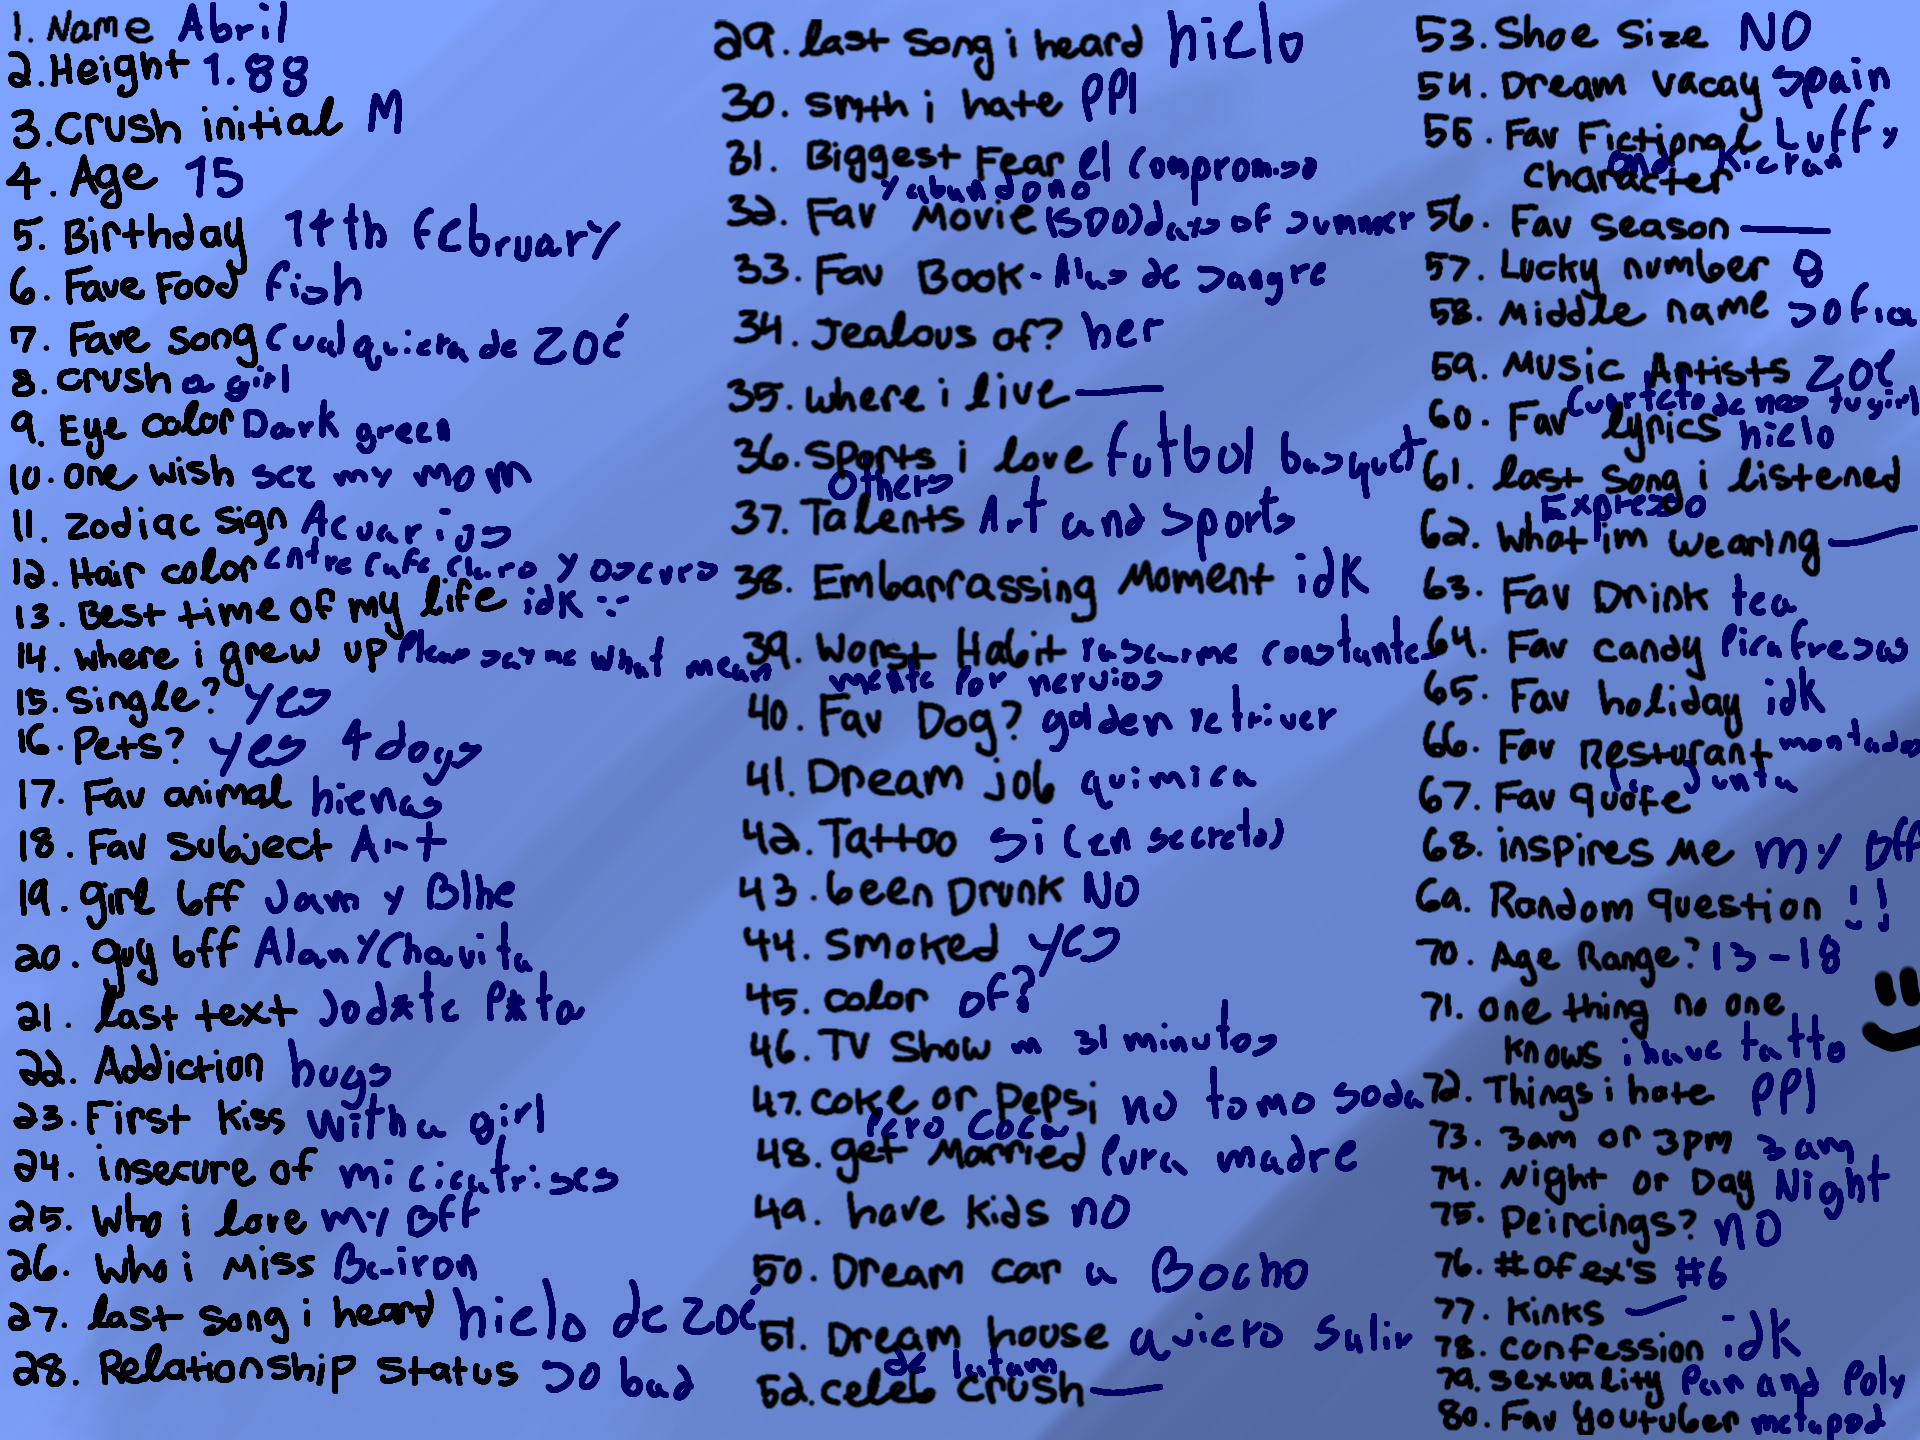 1. Name Abril
2. Height 1.88
3. Crush initial M
4. Age 15
5. Birthday 14th february
6. Fave Food fish
7. Fave song Cualquiera de Zoé
8. crush a girl
9. Eye color Dark green
10. one wish see my mom
11. zodiac sign Acuarios
12. Hair color entre cafe claro y oscuro
13. Best time of my life idk :-
14. where i grew up Pleas say me what mean
15. Single? yes
16. Pets? yes 4 dogs
17. Fav animal hienas
18. Fav Subject Art
19. girl bff Jam y Blhe
20. guy bff Alan Y Chavita
21. last text Jod*te P*ta
22. Addiction hugs
23. First kiss With a girl
24. insecure of mi cicatrises
25. Who i love my Bff
26. Who i Miss Ba-iron
27. last song i heard hielo de zoé
28. Relationship status so bad
29. last song i heard hielo
30. smth i hate PPl
31. Biggest Fear el compromiso
y abandono
32. Fav Movie (500) days of summer
33. Fav Book - Alas de sangre
34. Jealous of? her
35. where i live —
36. Sports i love futbol basquet
Others
37. Talents Art and sports
38. Embarrassing Moment idk
39. Worst Habit rascarme constante
mente por nervios
40. Fav Dog? golden retriver
41. Dream job quimica
42. Tattoo si (en secreto)
43. been Drunk NO
44. Smoked yes
45. color of?
46. TV Show 31 minutos
47. coke or Pepsi no tomo soda
Pero Coca
48. get Married Pura madre
49. have kids no
50. Dream car a Bocho
51. Dream house quiero salir
de latam
52. celeb crush —
53. Shoe Size NO
54. Dream vacay spain
55. Fav Fictional Luffy
and Kieran
character
56. Fav season —
57. Lucky number 8
58. Middle name sofia
59. Music Artists Zoé
Cuarteto de nos tv girl
60. Fav lyrics hielo
61. last song i listened
Expresso
62. What im wearing —
63. Fav Drink tea
64. Fav candy Picafresas
65. Fav holiday idk
66. Fav Resturant montados
la Junta
67. Fav quote
68. inspires Me my Bff
69. Random question !!
70. Age Range? 13-18
71. one thing no one
knows i have tatto
72. Things i hate PPl
73. 3am or 3pm 3 am
74. Night or Day Night
75. Peircings? no
76. # of ex's #6
77. kinks —
78. confession idk
79. sexuality Pan and Poly
80. Fav youtuber metapod